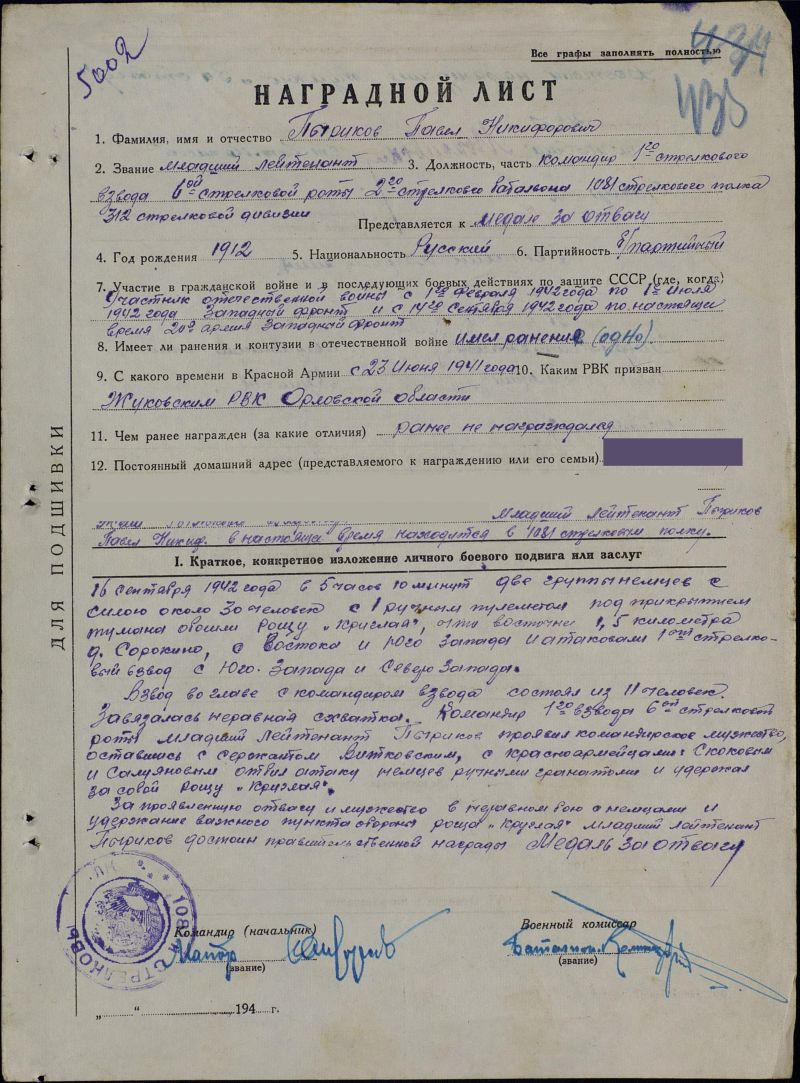 5002
Все графы заполнять полностью
434
НАГРАДНОЙ ЛИСТ
1. Фамилия, имя и отчество Пыриков Павел Никифорович
2. Звание младший лейтенант 3. Должность, часть командир 1го стрелкового
взвода 6ой стрелковой роты 2го стрелкового батальона 1081 стрелкового полка
312 стрелковой дивизии
Представляется к медале за отвагу
4. Год рождения 1912 5. Национальность Русский 6. Партийность б/партийный
7. Участие в гражданской войне и в последующих боевых действиях по защите СССР (где, когда)
Участник отечественной войны с 1го Февраля 1942 года по 1е Июля
1942 года Западный фронт и с 14го Сентября 1942 года по настоящее
время 20я армия Западный фронт
8. Имеет ли ранения и контузии в отечественной войне имел ранение (одно).
9. С какого времени в Красной Армии с 23 Июня 1941 года 10. Каким РВК призван
Жуковским РВК Орловской области
11. Чем ранее награжден (за какие отличия) ранее не награждался
12. Постоянный домашний адрес (представляемого к награждению или его семьи)
Младший Лейтенант Пыриков
Павел Никиф. в настояще время находится в 1081 стрелковым полку.
ДЛЯ ПОДШИВКИ
I. Краткое, конкретное изложение личного боевого подвига или заслуг
16 сентября 1942 года в 5 часов 10 минут две группы немцев с
силою около 30 человек с 1 ручным пулеметом под прикрытием
тумана обошли рощу „Круглая", что восточни 1,5 километра
д. Сорокино, с Востока и Юго Запада и атаковали 1ый стрелко-
вый взвод с Юго-Запада и Северо Запада.
Взвод во главе с командиром взвода состоял из 11 человек.
Завязалась неравная схватка. Командир 1го взвода 6ой стрелковой
роты младший Лейтенант Пыриков проявил командирское мужество,
оставшись с сержантом Витковским, с красноармейцами: Скоковым
и Самуяновым отбил атаку немцев ручными гранатами и удержал
за собой рощу „Круглая".
За проявленную отвагу и мужество в неравном бою с немцами и
удержание важного пункта обороны роща „Круглая" младший Лейтенант
Пыриков достоин правительственной награды Медаль За отвагу
Командир (начальник)
Военный комиссар
Майор
Батальон. Комиссар
(звание)
(звание)
1081 СТРЕЛКОВЫ
„ " 194 г.